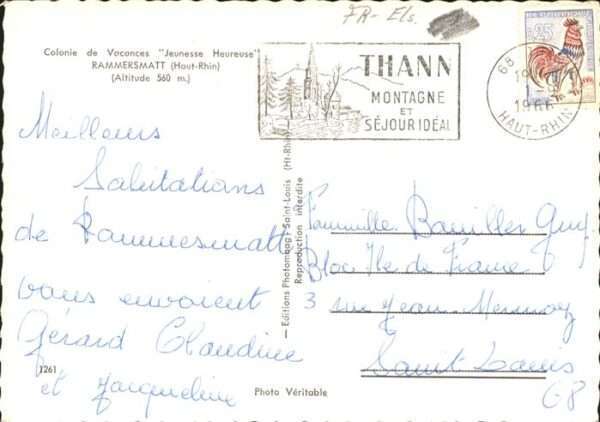 FR-Els.
Colonie de Vacances "Jeunesse Heureuse"
RAMMERSMATT (Haut-Rhin)
(Altitude 560 m.)
THANN
MONTAGNE
ET
SÉJOUR IDÉAL
68
1966
HAUT-RHIN
25
Meilleurs
Salutations
de Rammesmatt
vous envoient
Gérard Claudine
et Jacqueline
1261
Photo Véritable
— Editions Photomag - Saint-Louis (Ht-Rhin)
Reproduction interdite
Fammille Guy
Bloc Ile de France
3 rue Jean Mermoz
Saint Louis
68